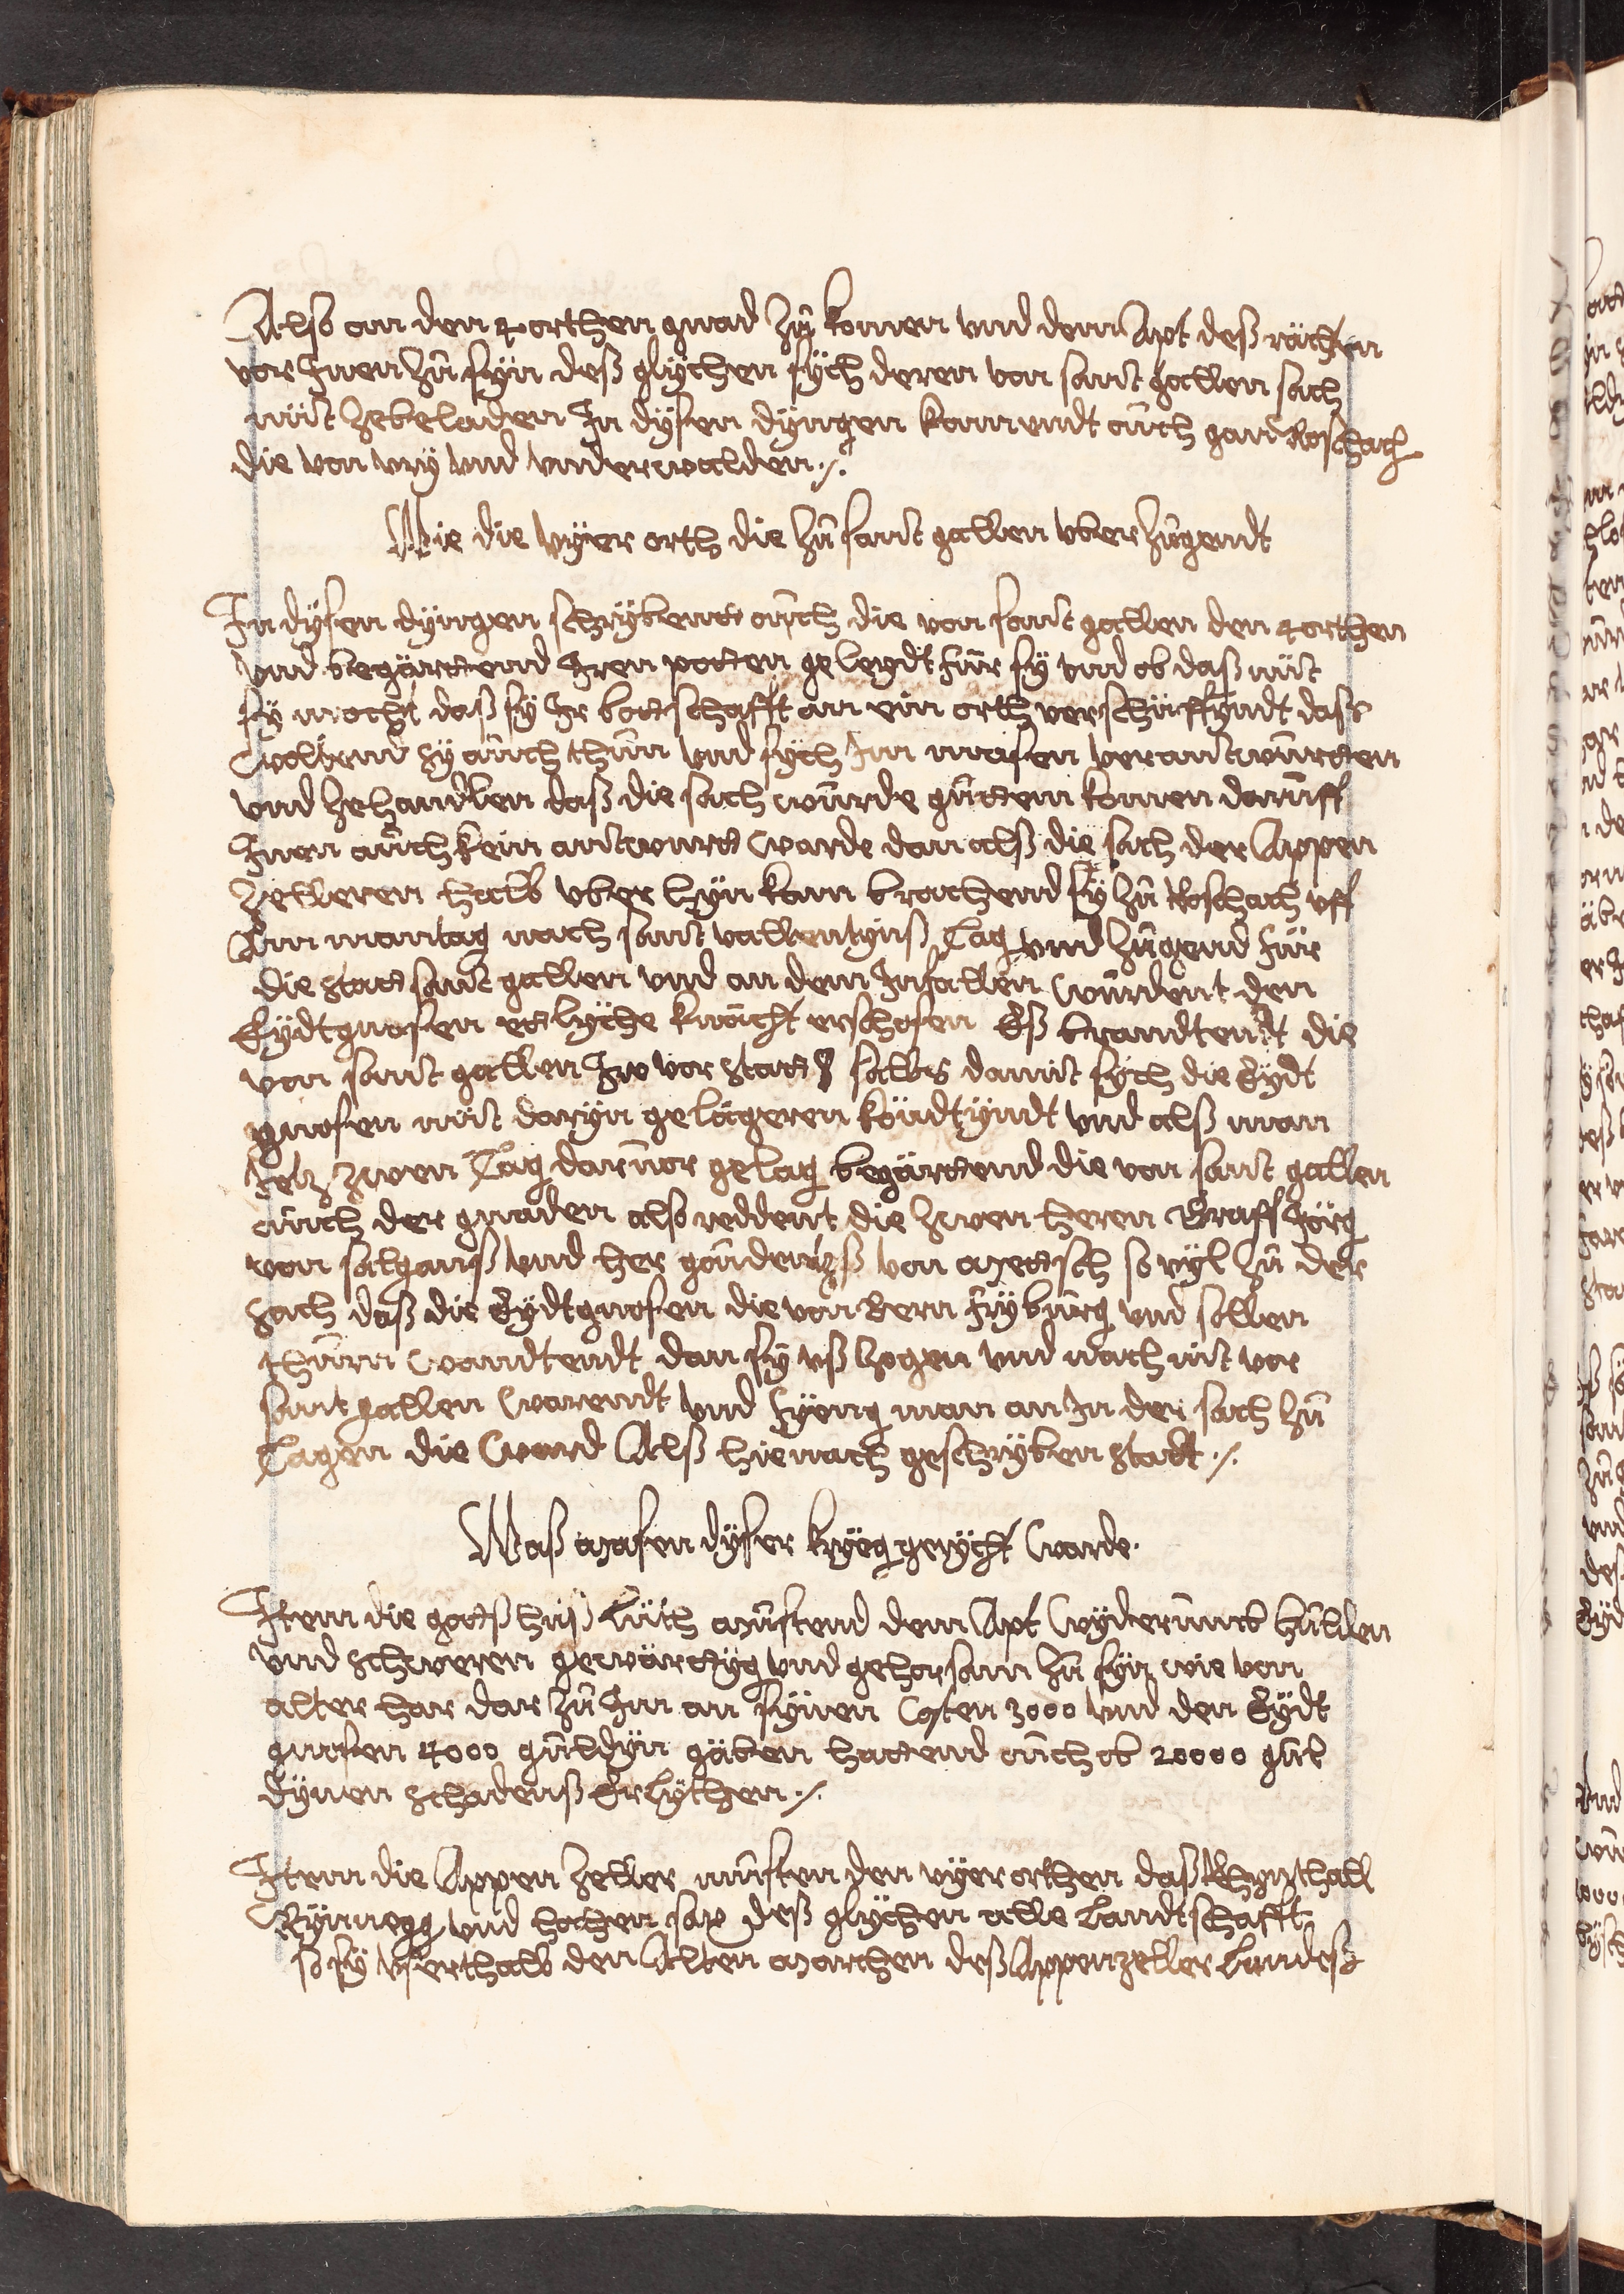 Also an den 4 orthen gnad zů komen vnd dem Apt deß rächten
vor Inen zů syn deß glychen sych deren von sant gallen sach
nüt zebeladen In dysen dyngen kamendt ouch gan Roschach
die von vry vnd vnderwalden ./.
Wie die vyer orth die zů sant gallen vberzugendt
In dysen dyngen schrybent ouch die von sant gallen den 4 orthen
vnd begärttend Iren potten geleydt für sy vnd ob daß nüt
sy mocht daß sy Ir bottschafft an ein orth verschüffyndt daß
woltend sy ouch thůn vnd sych Im masen verantwurtten
vnd zehandlen daß die sach wurde gůttem komen daruff
Inen ouch kein antwurtt warde dan alß die sach der Appen
zelleren halb vber hyn kam brachend sy zů Roschach vff
Am mantag nach sant vallentynß Tag vnd zugend für
die statt sant gallen vnd an dem Infallen wurdent den
Eydtgnosen ettlyche knächt erschosen Eß brandtendt die
von sant gallen Ire vor statt salbs damit sych die Eydt
gnosen nüt daryn gelägeren köndtyndt vnd alß man
Jetz zwen Tag daruor gelag begärttend die von sant gallen
ouch der gnaden also reddent die zwen heren Graff Jörg
von salganß vnd her gaudentzß von Mettsch so vyl zů der
sach daß die Eydtgnosen die von Bern fryburg vnd sollen
thurn wandtendt dan sy vß zogen vnd nach nit vor
sant gallen warendt vnd fyeng man an In der sach zů
Tagen die ward Alß hienach geschryben stadt ./.
Waß Masen dyser kryeg gerycht warde.
Item die gottßhuß Lüth Mustend dem Apt wyderumb hulden
vnd schweren gewärttyg vnd gehorsam zů syn wie von
alter har dar zů Im an synen Costen 3000 vnd den Eydt
gnosen 4000 guldyn gäben hattend ouch ob 20000 gul
dynen schadenß Erlythen ./.
Item die Appenzeller musten den vyer orthen daß Rhynthall
Rynnegg vnd hochen sax deß glychen alle Landtschafft
so sy vserthalb den Alten Marchen deß Appenzeller Landeß